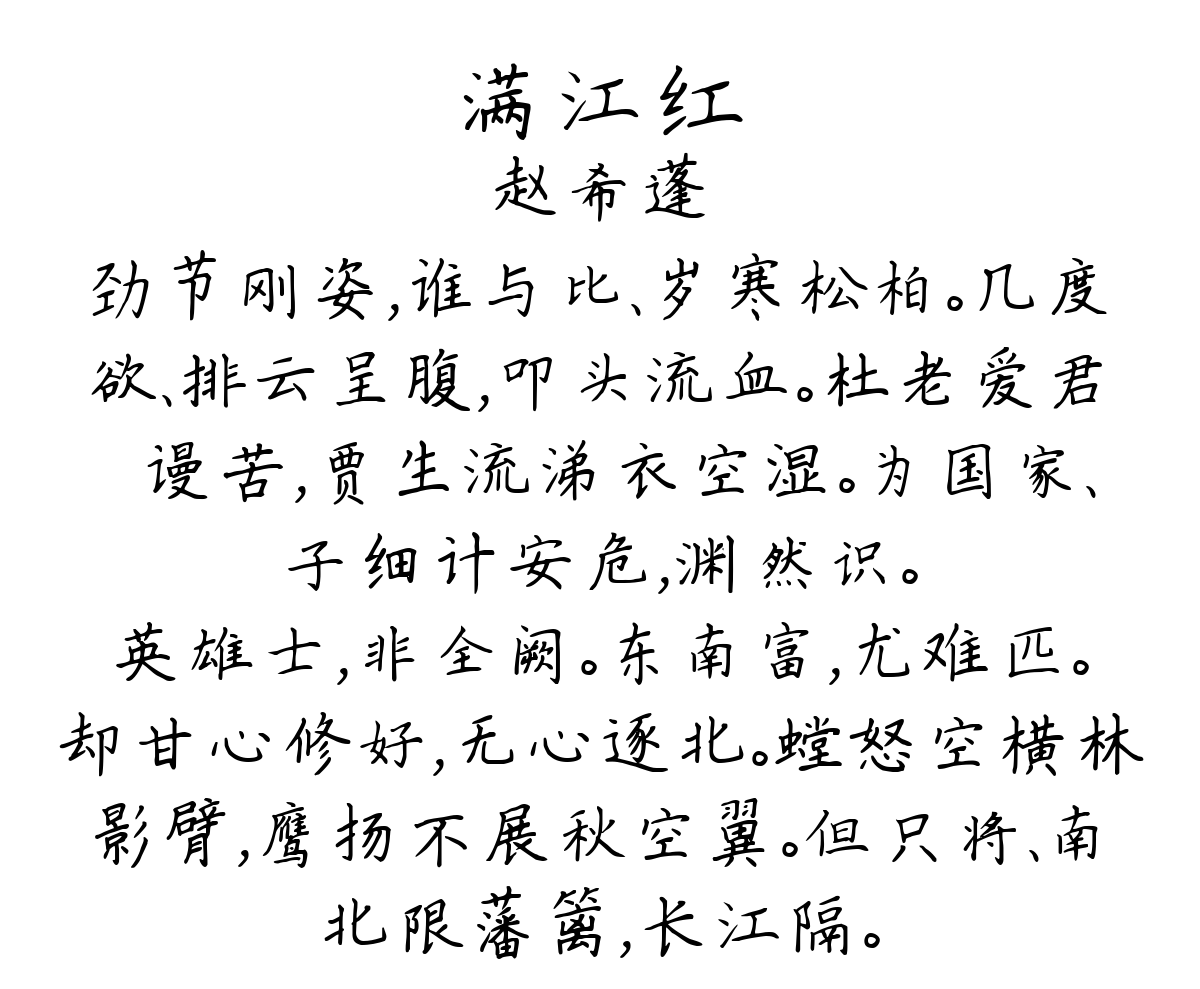 满江红
赵希蓬
劲节刚姿,谁与比、岁寒松柏。几度
欲、排云呈腹,叩头流血。杜老爱君
谩苦,贾生流涕衣空湿。为国家、
子细计安危,渊然识。
英雄士,非全阙。东南富,尤难匹。
却甘心修好,无心逐北。螳怒空横林
影臂,鹰扬不展秋空翼。但只将、南
北限藩篱,长江隔。